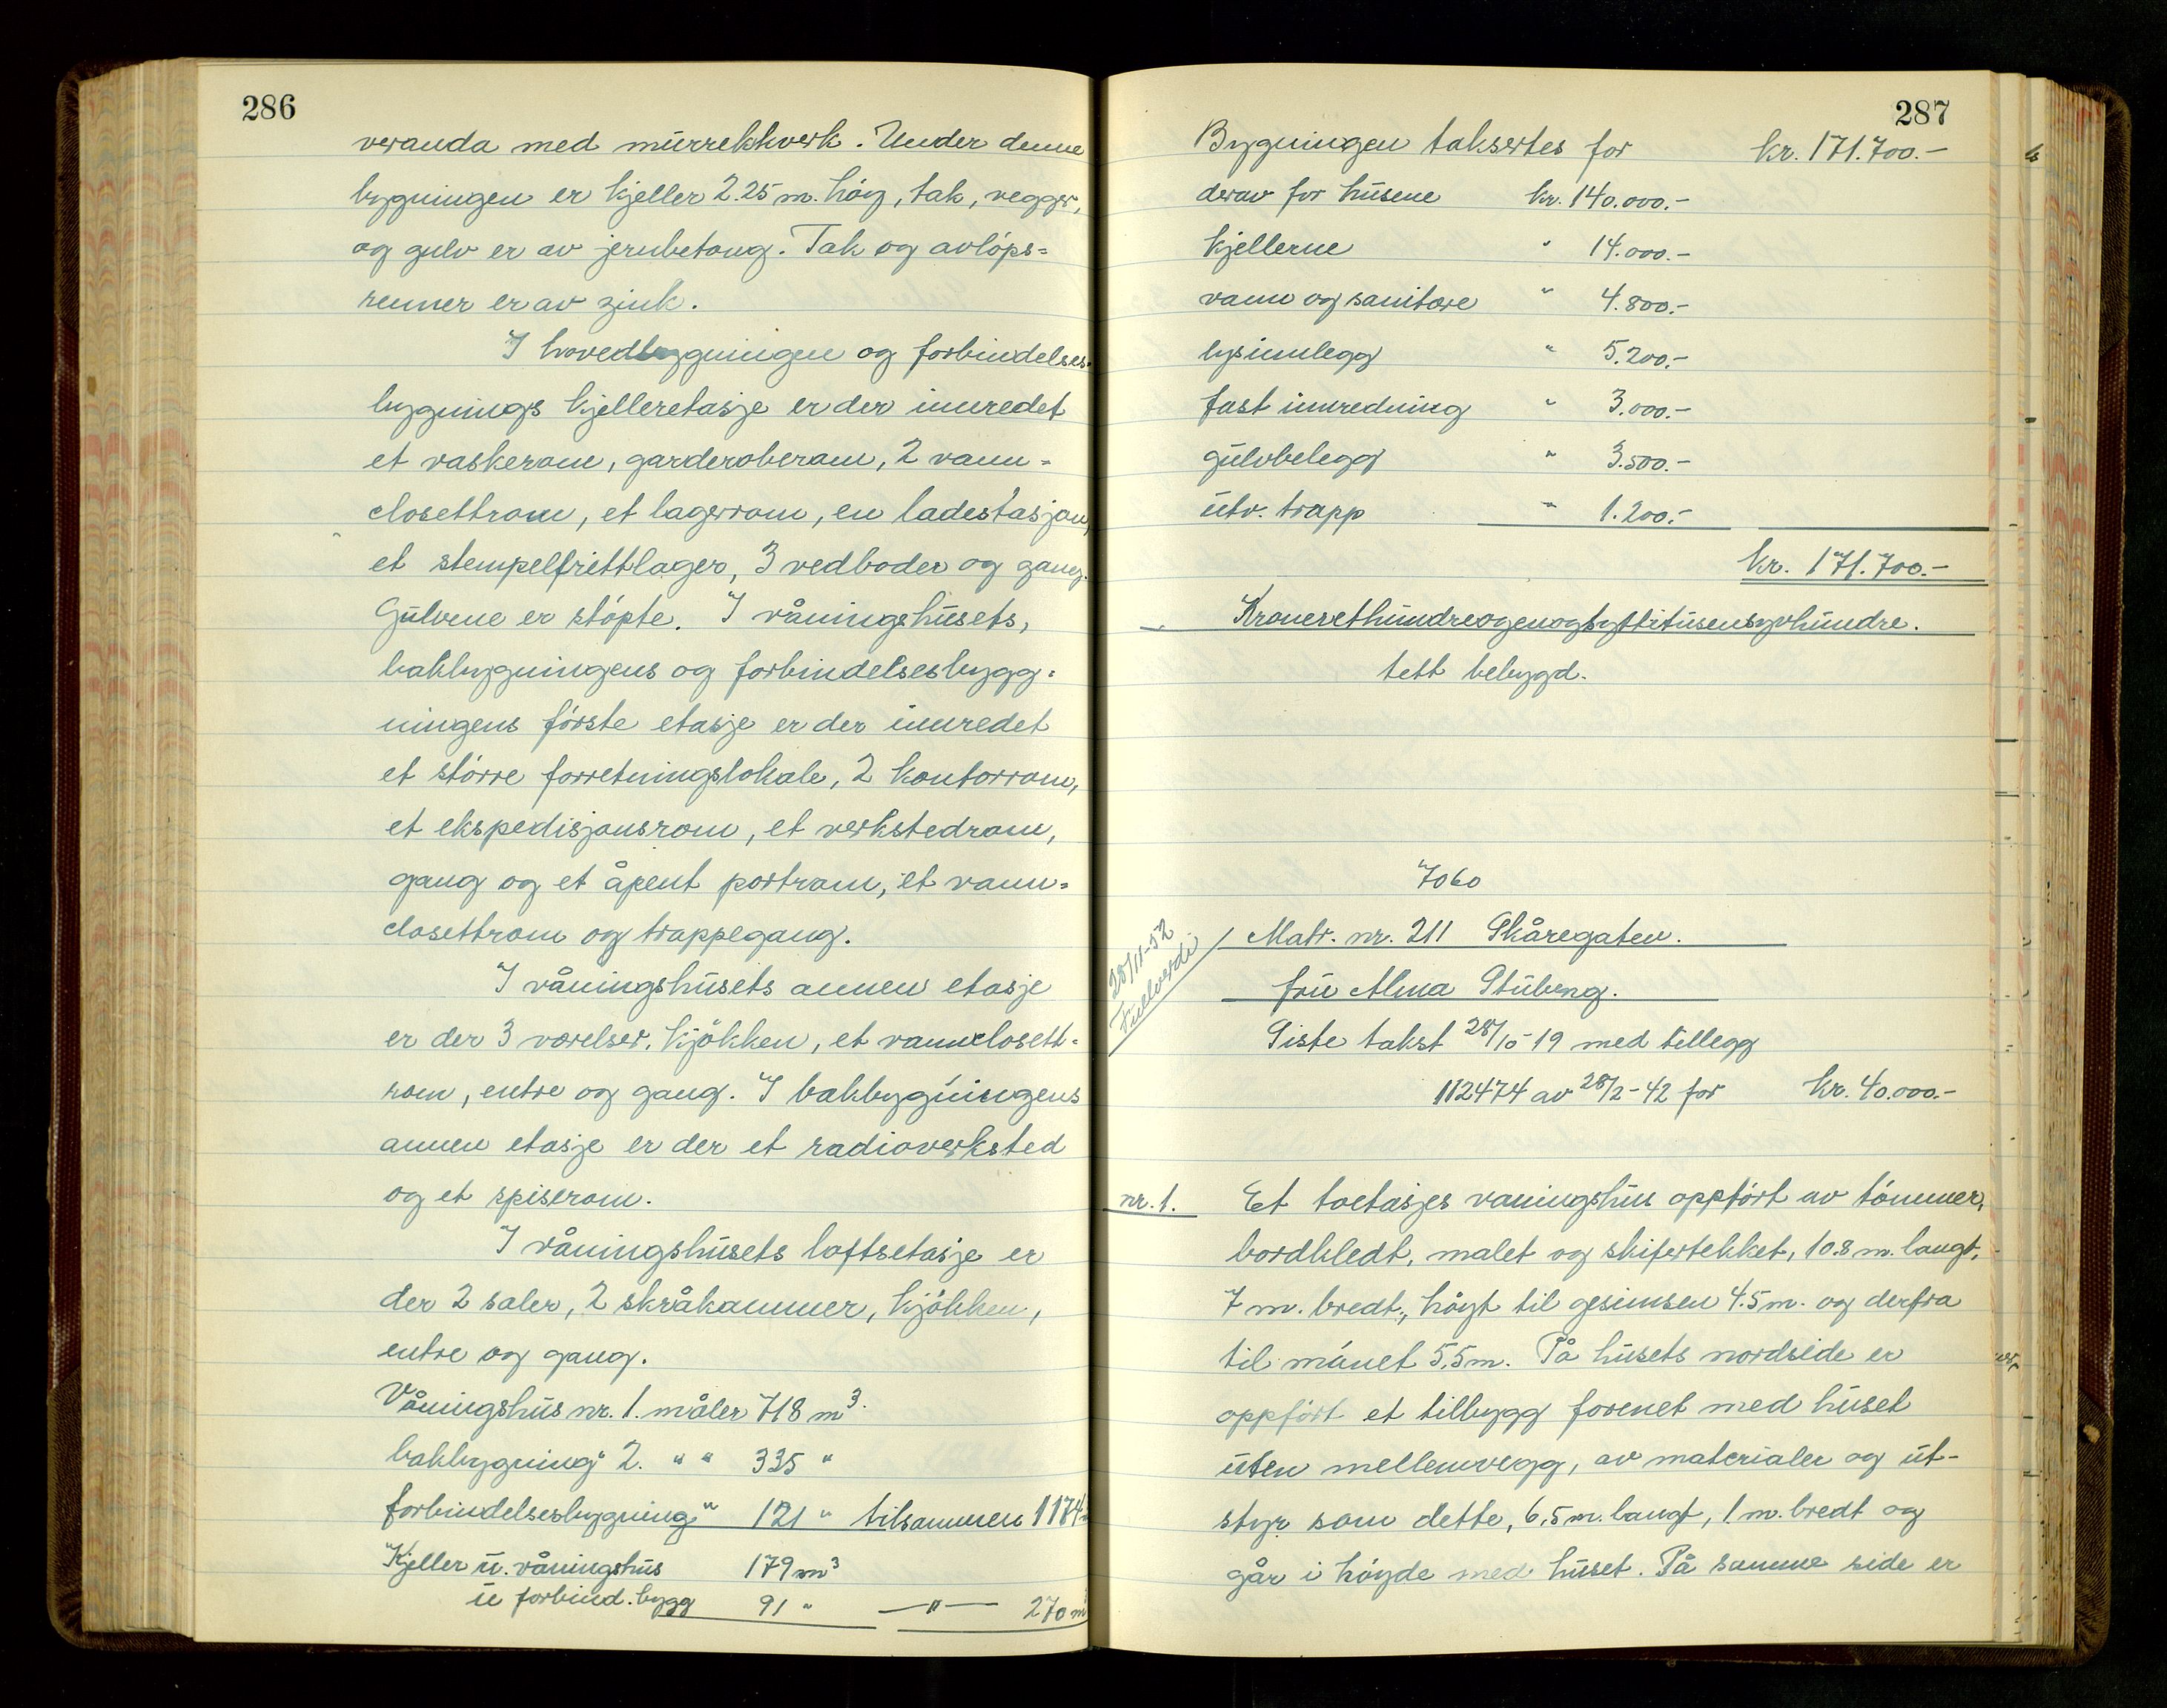 286
veranda med murrekkverk. Under denne
bygningen er kjeller 2.25 m. höy, tak, vegger,
og gulv er av jernbetong. Tak og avlöps=
renner er av zink.
I hovedbygningen og forbindelses=
bygnings kjelleretasje er der innredet
et vaskerom, garderoberom, 2 vann=
closettrom, et lagerrom, en ladestasjon,
et stempelfrittlager, 3 vedboder og gang.
Gulvene er stöpte. I våningshusets,
bakbygningens og forbindelsesbygg=
ningens förste etasje er der innredet
et större forretningslokale, 2 kontorrom,
et ekspedisjonsrom, et verkstedrom,
gang og et åpent portrom, et vann=
closettrom og trappegang.
I våningshusets annen etasje
er der 3 værelser, kjökken, et vannclosett=
rom, entre og gang. I bakbygningens
annen etasje er der et radioverksted
og et spiserom.
I våningshusets loftsetasje er
der 2 saler, 2 skråkammer, kjökken,
entre og gang.
Våningshus nr. 1. måler 718 m³.
bakbygning " 2. " " 335 "
forbindelsesbygning " 121 " tilsammen 1174 m
Kjeller u. våningshus 179 m³
u forbind. bygg 91 " —"— 270 m
287
Bygningen takseres for kr. 171.700.-
derav for husene kr. 140.000.-
kjellerne " 14.000.-
vann og sanitære " 4.800.-
lysinnlegg " 5.200.-
fast innredning " 3.000.-
gulvbelegg " 3.500.-
utv. trapp " 1.200.-
kr. 171.700.-
Kronerethundreogenogsyttitusensyvhundre.
tett bebygd.
7060
28/11-52
Fullverdi
Matr. nr. 211 Skåregaten.
fru Alma Stuberg.
Siste takst 28/10-19 med tillegg
112474 av 28/2-42 for kr. 40.000.-
nr. 1. Et toetasjes vaningshus oppfört av tömmer,
bordkledt, malet og skifertekket, 10.8 m. langt,
7 m. bredt, höyt til gesimsen 4.5 m. og derfra
til mönet 5,5 m. På husets nordside er
oppfört et tilbygg forenet med huset
uten mellemvegg, av materialer og ut-
styr som dette, 6,5 m. langt, 1 m. bredt og
går i höyde med huset. På samme side er